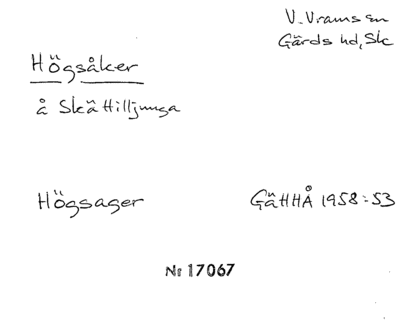 V. Vrams sn
Gärds hd, Sk
Högsåker
å Skättilljunga
Högsager
GäHHÅ 1958:53
Nr 17067